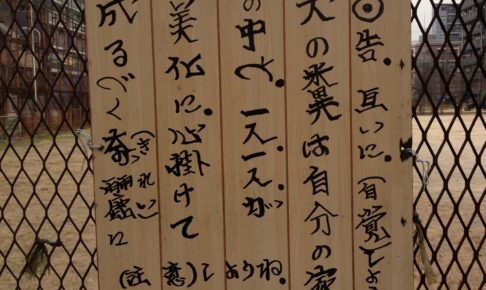 ◎告。互いに。(自覚)しよ
犬の糞は自分の家
の中で。一人一人が
美化に。心掛けて
成るべく奇(きっ
麗(れい)に
(注意)しようね。